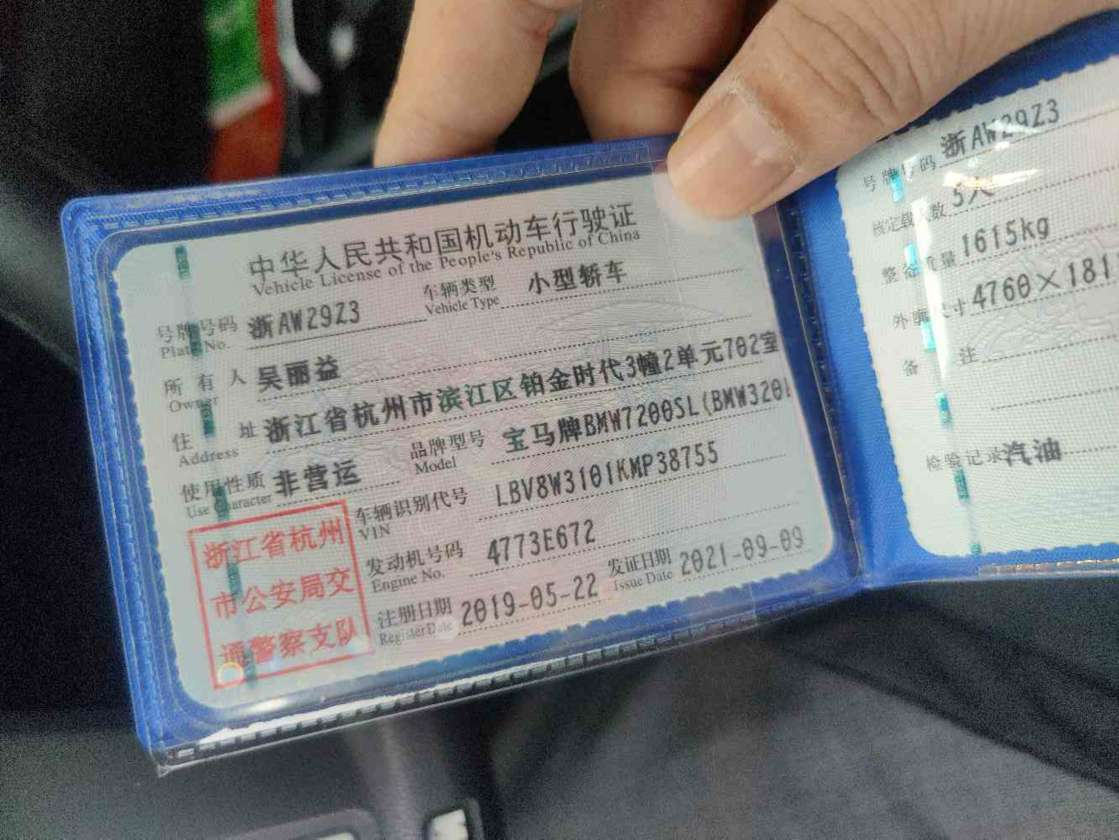 中华人民共和国机动车行驶证
Vehicle License of the People's Republic of China
号牌号码 浙AW29Z3 车辆类型 小型轿车
Plate No. Vehicle Type
所有人 吴丽益
Owner
住址 浙江省杭州市滨江区铂金时代3幢2单元702室
Address
使用性质 非营运 品牌型号 宝马牌BMW7200SL(BMW320
Use Character Model
车辆识别代号 LBV8W3101KMP38755
VIN
发动机号码 4773E672
Engine No.
注册日期 2019-05-22 发证日期 2021-09-09
Register Date Issue Date
浙江省杭州
市公安局交
通警察支队
号牌号码 浙AW29Z3
核定载人数 5人
整备质量 1615kg
外廓尺寸 4760×181
备注
检验记录 汽油